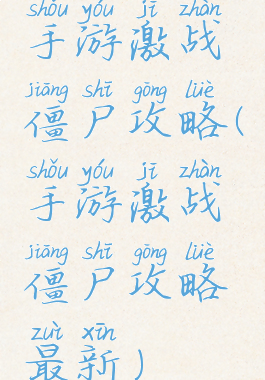 shǒu yóu jī zhàn
手游激战
jiāng shī gōng lüè
僵尸攻略(
shǒu yóu jī zhàn
手游激战
jiāng shī gōng lüè
僵尸攻略
zuì xīn
最新)